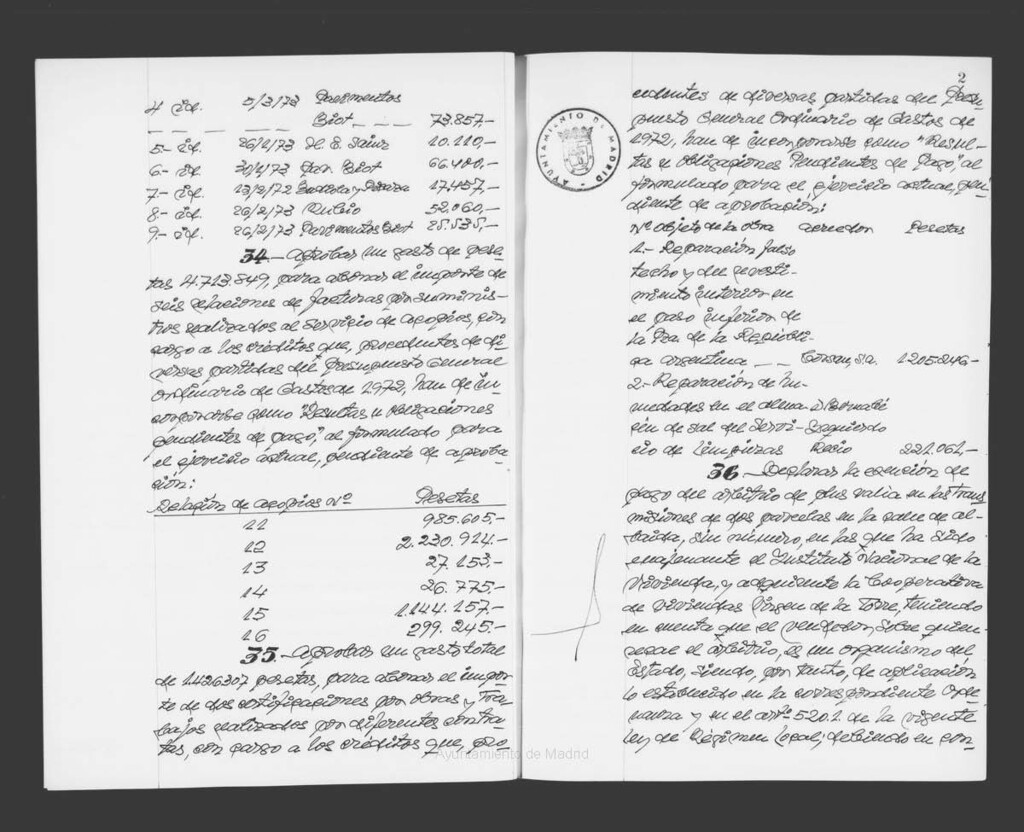 4 id. 5/3/73 Pavimentos
Biot 73.857-
5- id. 26/2/73 H. S. Sainz 10.110,-
6- id. 30/1/73 Biot 66.400,-
7- id. 13/2/72 17.457,-
8- id. 26/2/73 Rubio 52.060,-
9- id. 26/2/73 Pavimentos Biot 25.535,-
34.- Aprobar un gasto de pese-
tas 4.713.849, para abonar el importe de
seis relaciones de facturas por suminis-
tros realizados al Servicio de acopios, con
cargo a los créditos que, procedentes de di-
versas partidas del Presupuesto General
Ordinario de Gastos de 1972, han de in-
corporarse como "Resultas u Obligaciones
pendientes de pago", al formulado para
el ejercicio actual, pendiente de aproba-
ción:
Relación de acopios nº Pesetas
11 985.605,-
12 2.230.914.-
13 27.153.-
14 26.775.-
15 1.144.157.-
16 299.245.-
35.- Aprobar un gasto total
de 1.426.307 pesetas, para abonar el impor-
te de dos certificaciones por obras y tra-
bajos realizados por diferentes contra-
tas, con cargo a los créditos que, pro-
Ayuntamiento de Madrid
2
AYUNTAMIENTO DE MADRID
cedentes de diversas partidas del Presu-
puesto General Ordinario de Gastos de
1972, han de incorporarse como "Resul-
tas u Obligaciones Pendientes de Pago", al
formulado para el ejercicio actual, pen-
diente de aprobación:
Nº Objeto de la obra acreedor Pesetas
1.- Reparación falso
techo y del revesti-
miento interior en
el paso inferior de
la Pza. de la Repúbli-
ca argentina Corsan, s.a. 1.205.246-
2.- Reparación de hu-
medades en el alma- D. Bernabé
cén de sal del Servi- Izquierdo
cio de Limpiezas Recio 221.061,-
36.- Declarar la exención de
pago del arbitrio de plus valía en las trans
misiones de dos parcelas en la calle de Al-
baida, sin número, en las que ha sido
enajenante el Instituto Nacional de la
Vivienda, y adquirente la Cooperativa
de Viviendas Virgen de la Torre, teniendo
en cuenta que el vendedor, sobre quien
recae el arbitrio, es un organismo del
Estado, siendo, por tanto, de aplicación
lo establecido en la correspondiente Orde-
nanza y en el artº 520.1 de la vigente
Ley de Régimen Local; debiendo en con-